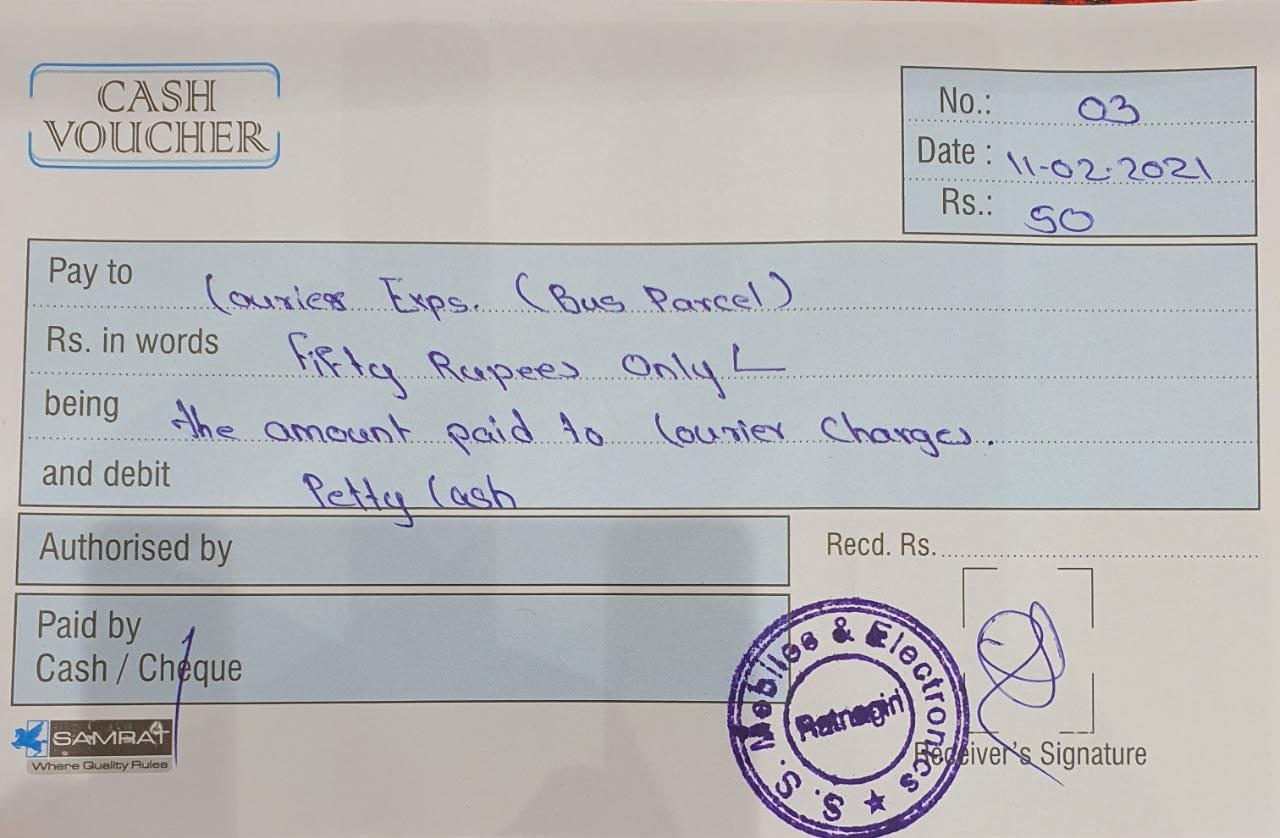 CASH
VOUCHER
No.: 03
Date : 11-02-2021
Rs.: 50
Pay to Courier Exps. (Bus Parcel)
Rs. in words fifty Rupees Only
being the amount paid to Courier Charges.
and debit Petty Cash
Authorised by
Recd. Rs.
Paid by
Cash / Cheque
SAMRAT
Where Quality Rules
S. S. Mobiles & Electronics ★
Ratnagiri
Receiver's Signature